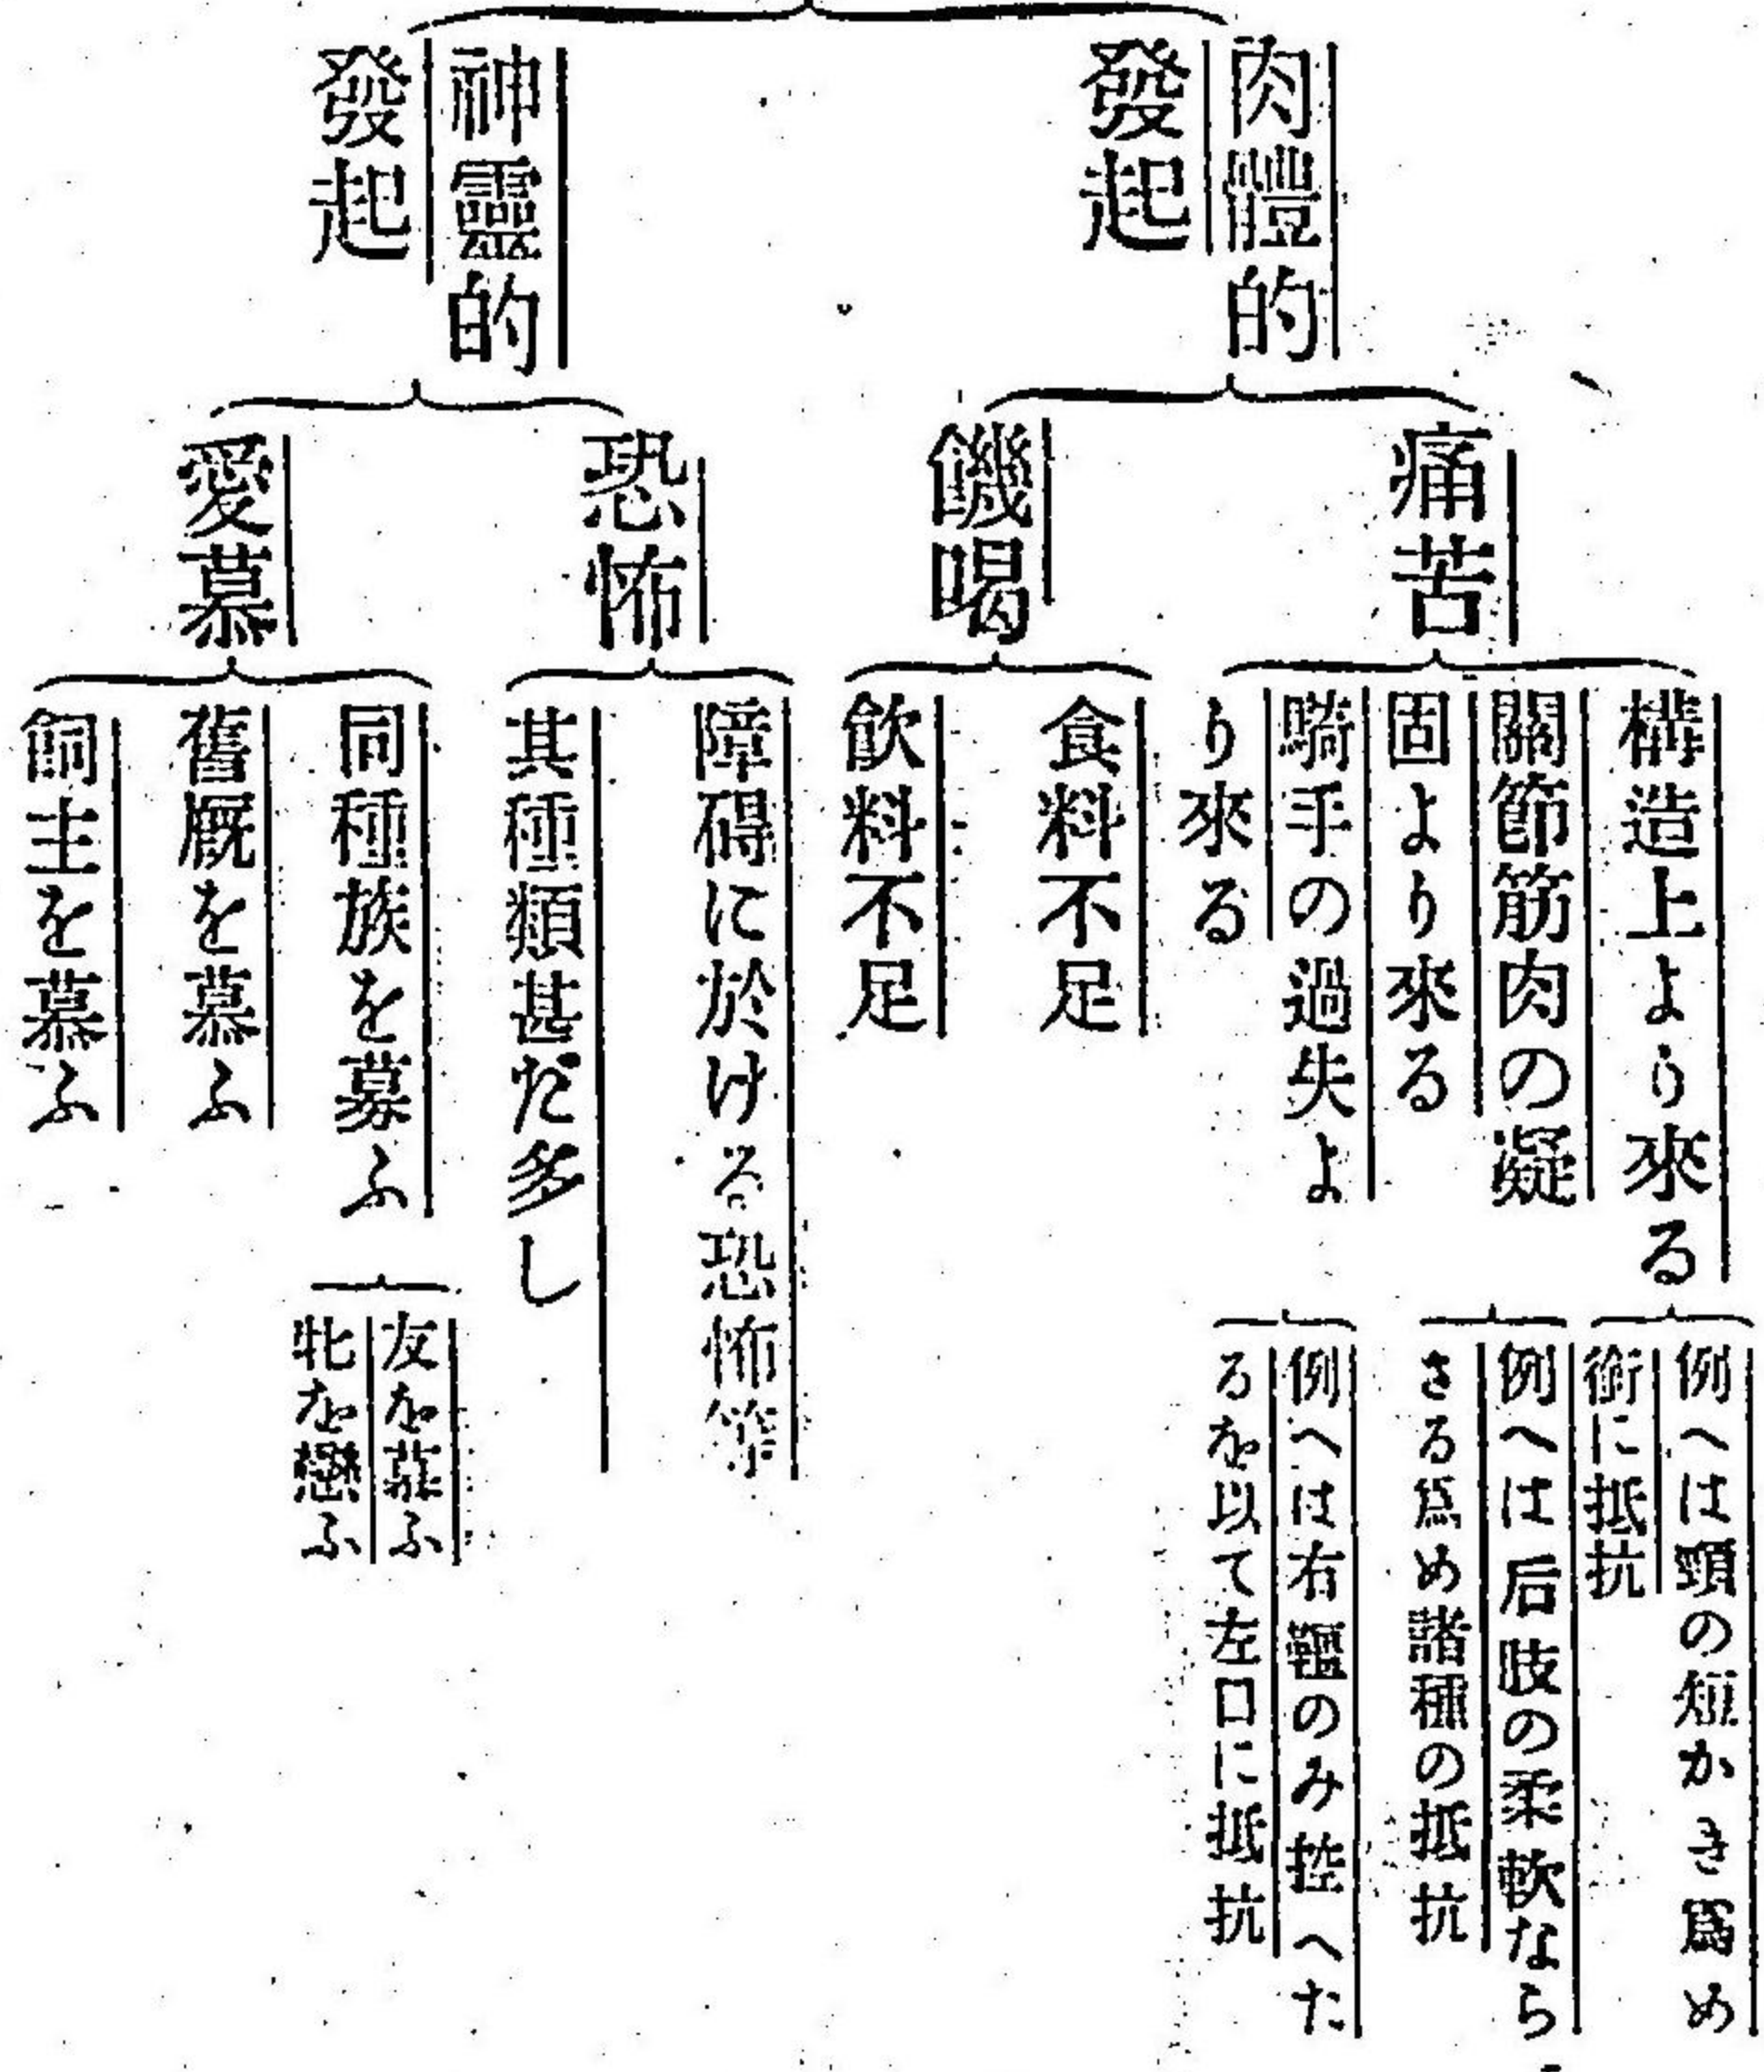 肉體的
發起
痛苦
構造上より來る
例へは頸の短かき爲め
銜に抵抗
關節筋肉の凝
固より來る
例へは后肢の柔軟なら
さる爲め諸種の抵抗
騎手の過失よ
り來る
例へは右韁のみ控へた
るを以て左口に抵抗
饑喝
食料不足
飮料不足
神靈的
發起
恐怖
障碍に於ける恐怖等
其種類甚だ多し
愛慕
同種族を慕ふ
友を慕ふ
牝を戀ふ
舊厩を慕ふ
飼主を慕ふ